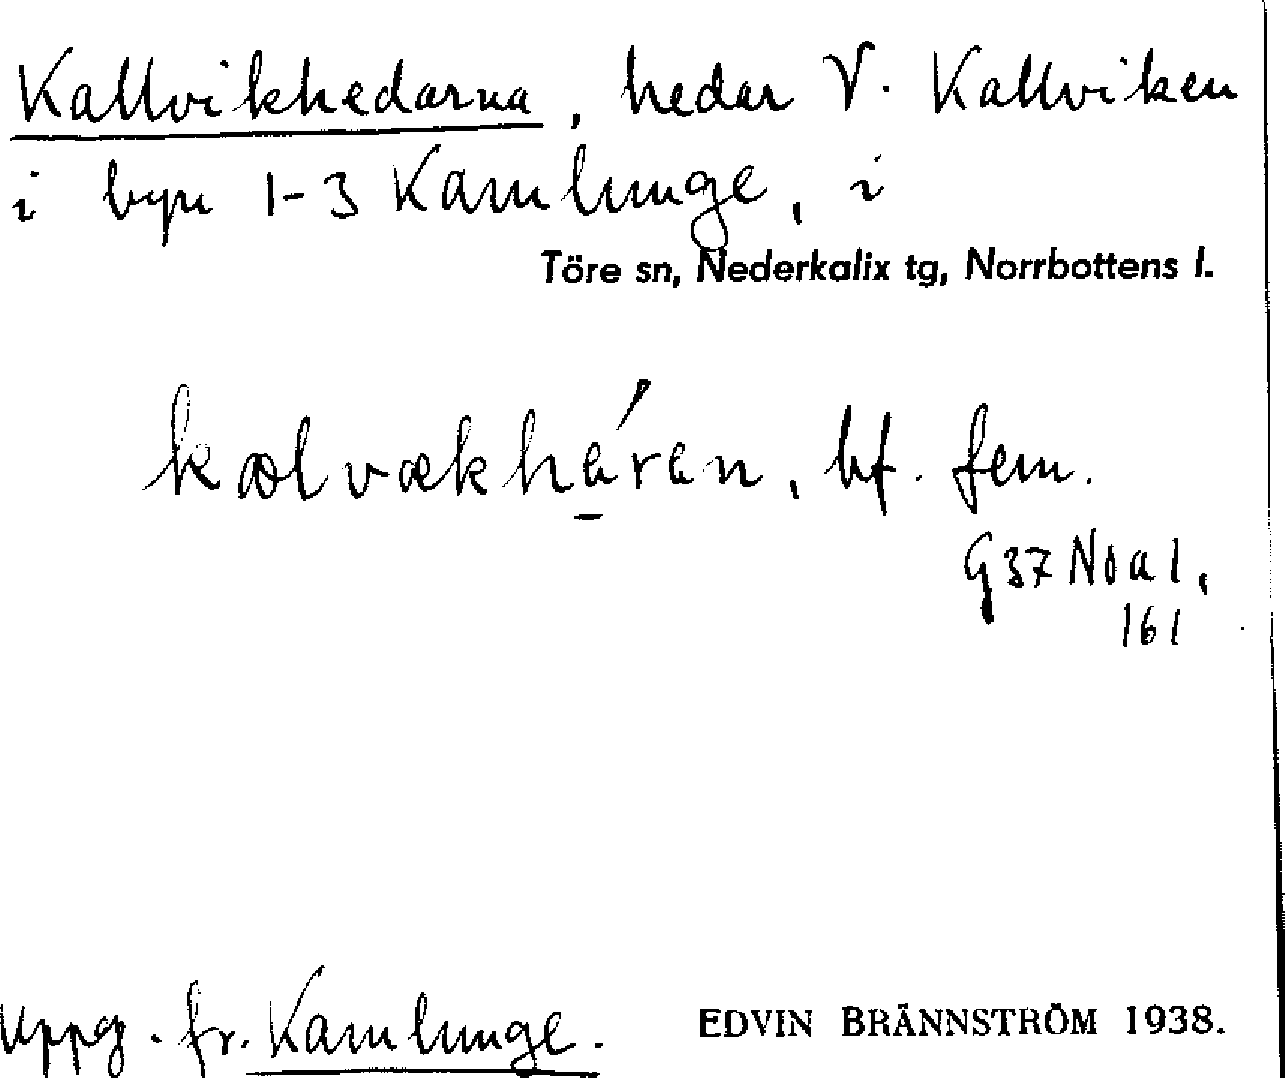 Kallvikhedarna, hedar V. Kallviken
i byn 1-3 Kamlunge, i
Töre sn, Nederkalix tg, Norrbottens l.
bf. fem.
G37 Noa1,
161
Uppg. fr. Kamlunge.
EDVIN BRÄNNSTRÖM 1938.